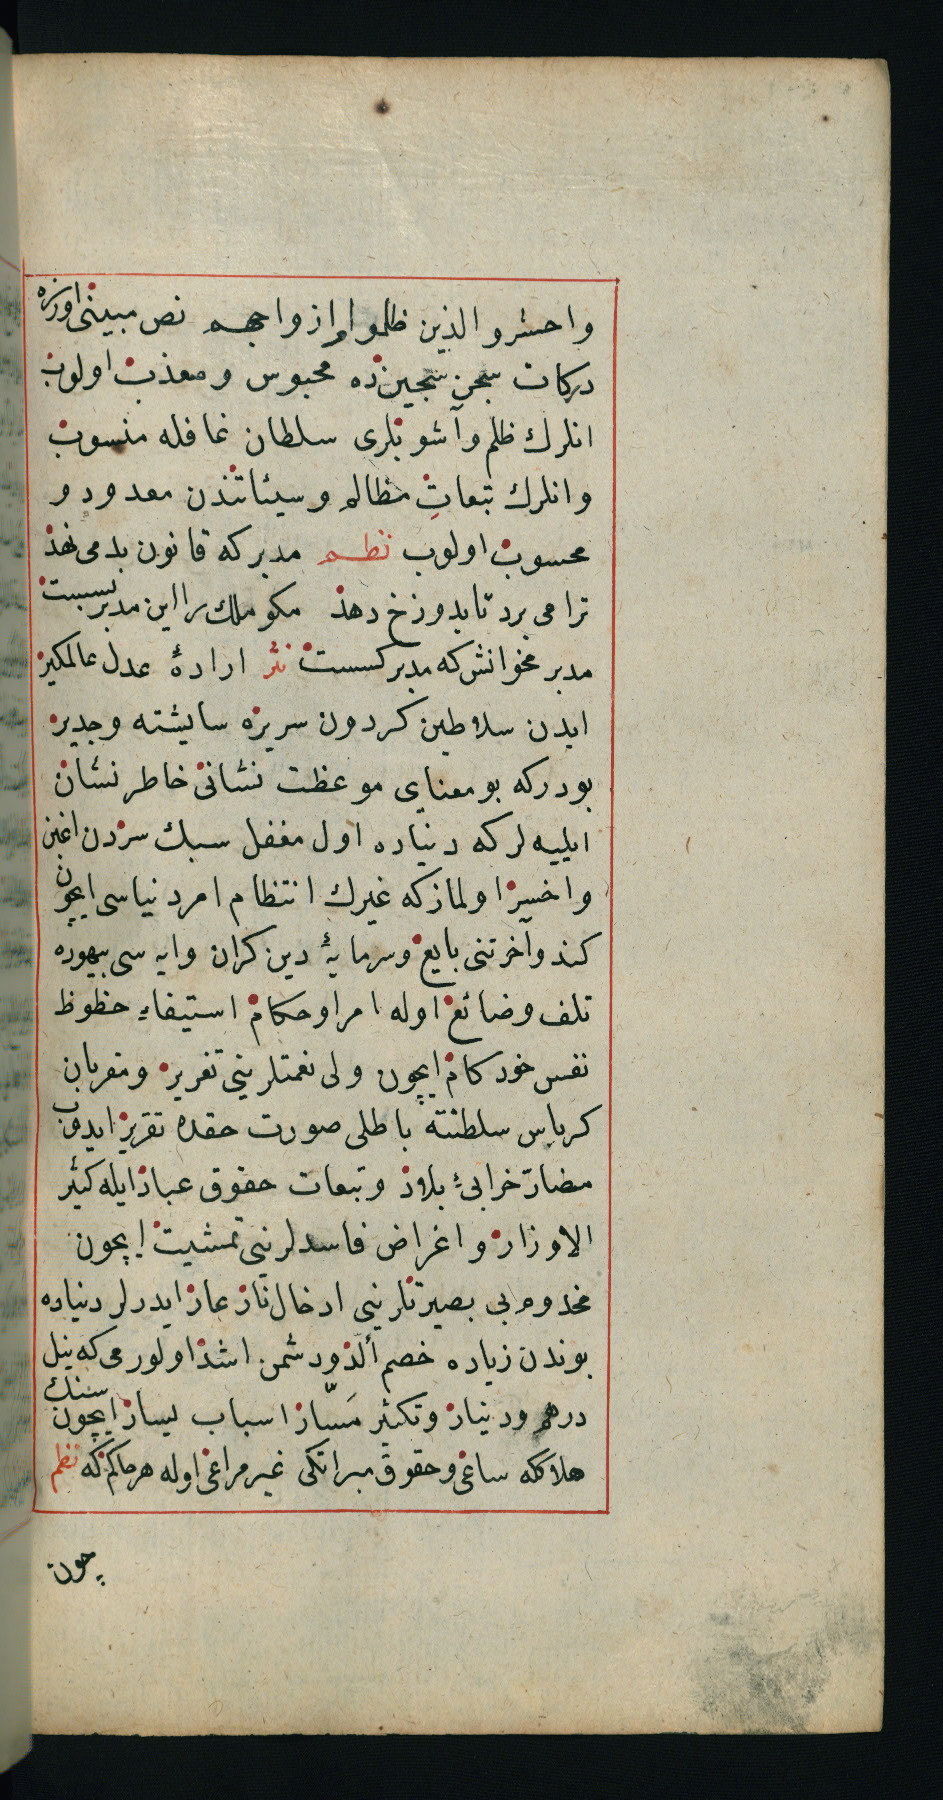 واحشروالذین ظلموا وازواجهم نص مبینی اوزره
درکات سجن سجین ده محبوس و معذب اولوب
انلرك ظلم و آشوبلری سلطان غافله منسوب
وانلرك تبعاتِ مظالم و سیئاتندن معدود و
محسوب اولوب نظم مدبر که قانون بد می نهد
ترا می برد تا بدوزخ دهد مکو ملك را این مدبر بسست
مدبر مخوانش که مدبر کسست نثر ارادهٔ عدل عالمکیر
ایدن سلاطین کردون سریره سایشته و جدیر
بودرکه بو معنای موعظت نشانی خاطر نشان
ایلیه لر که دنیاده اول مغفل سبك سردن اغبن
واخسر اولمازکه غیرك انتظام امر دنیاسی ایچون
کندو آخرتنی بایع و سرمایهٔ دین کران وایه سی بیهوده
تلف و ضائع اوله امرا و حکام استیفاء حظوظ
نفس خودکام ایچون ولی نعمتلرینی تغریر و مقربان
کریاس سلطنته باطلی صورت حقده تقریر ایدوب
مضارّ خرابیٔ بلاد و تبعات حقوق عباد ایله کثیر
الاوزار و اغراض فاسدلرینی تمشیت ایچون
مخدوم بی بصیرتلرینی ادخال نار عار ایدرلر دنیاده
بوندن زیاده خصم ألدّ و دشمن اشد اولورمی که نیل
درهم و دینار و تکثیر مَسّار اسباب یسار ایچون سنك
هلاککه ساعی و حقوق مبراتکی غیر مراعی اوله هر حاکم که نظم
چون